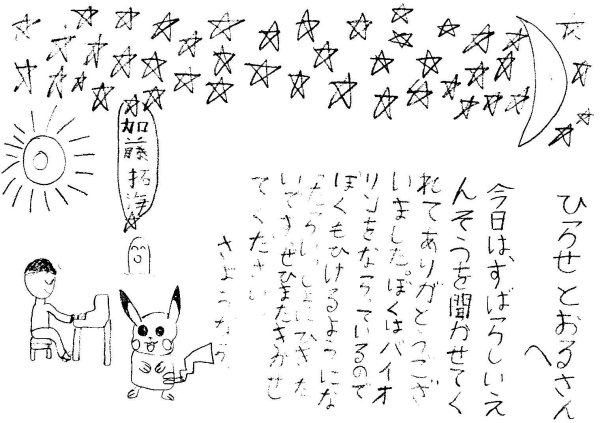 ひろせとおるさん
へ
今日は、すばらしいえ
んそうを聞かせてく
れてありがとうござ
いました。ぼくはバイオ
リンをならっているので
ぼくもひけるようにな
ったらいっしょにひきた
いです。ぜひまたきかせ
てください
さようなら
加藤拓海